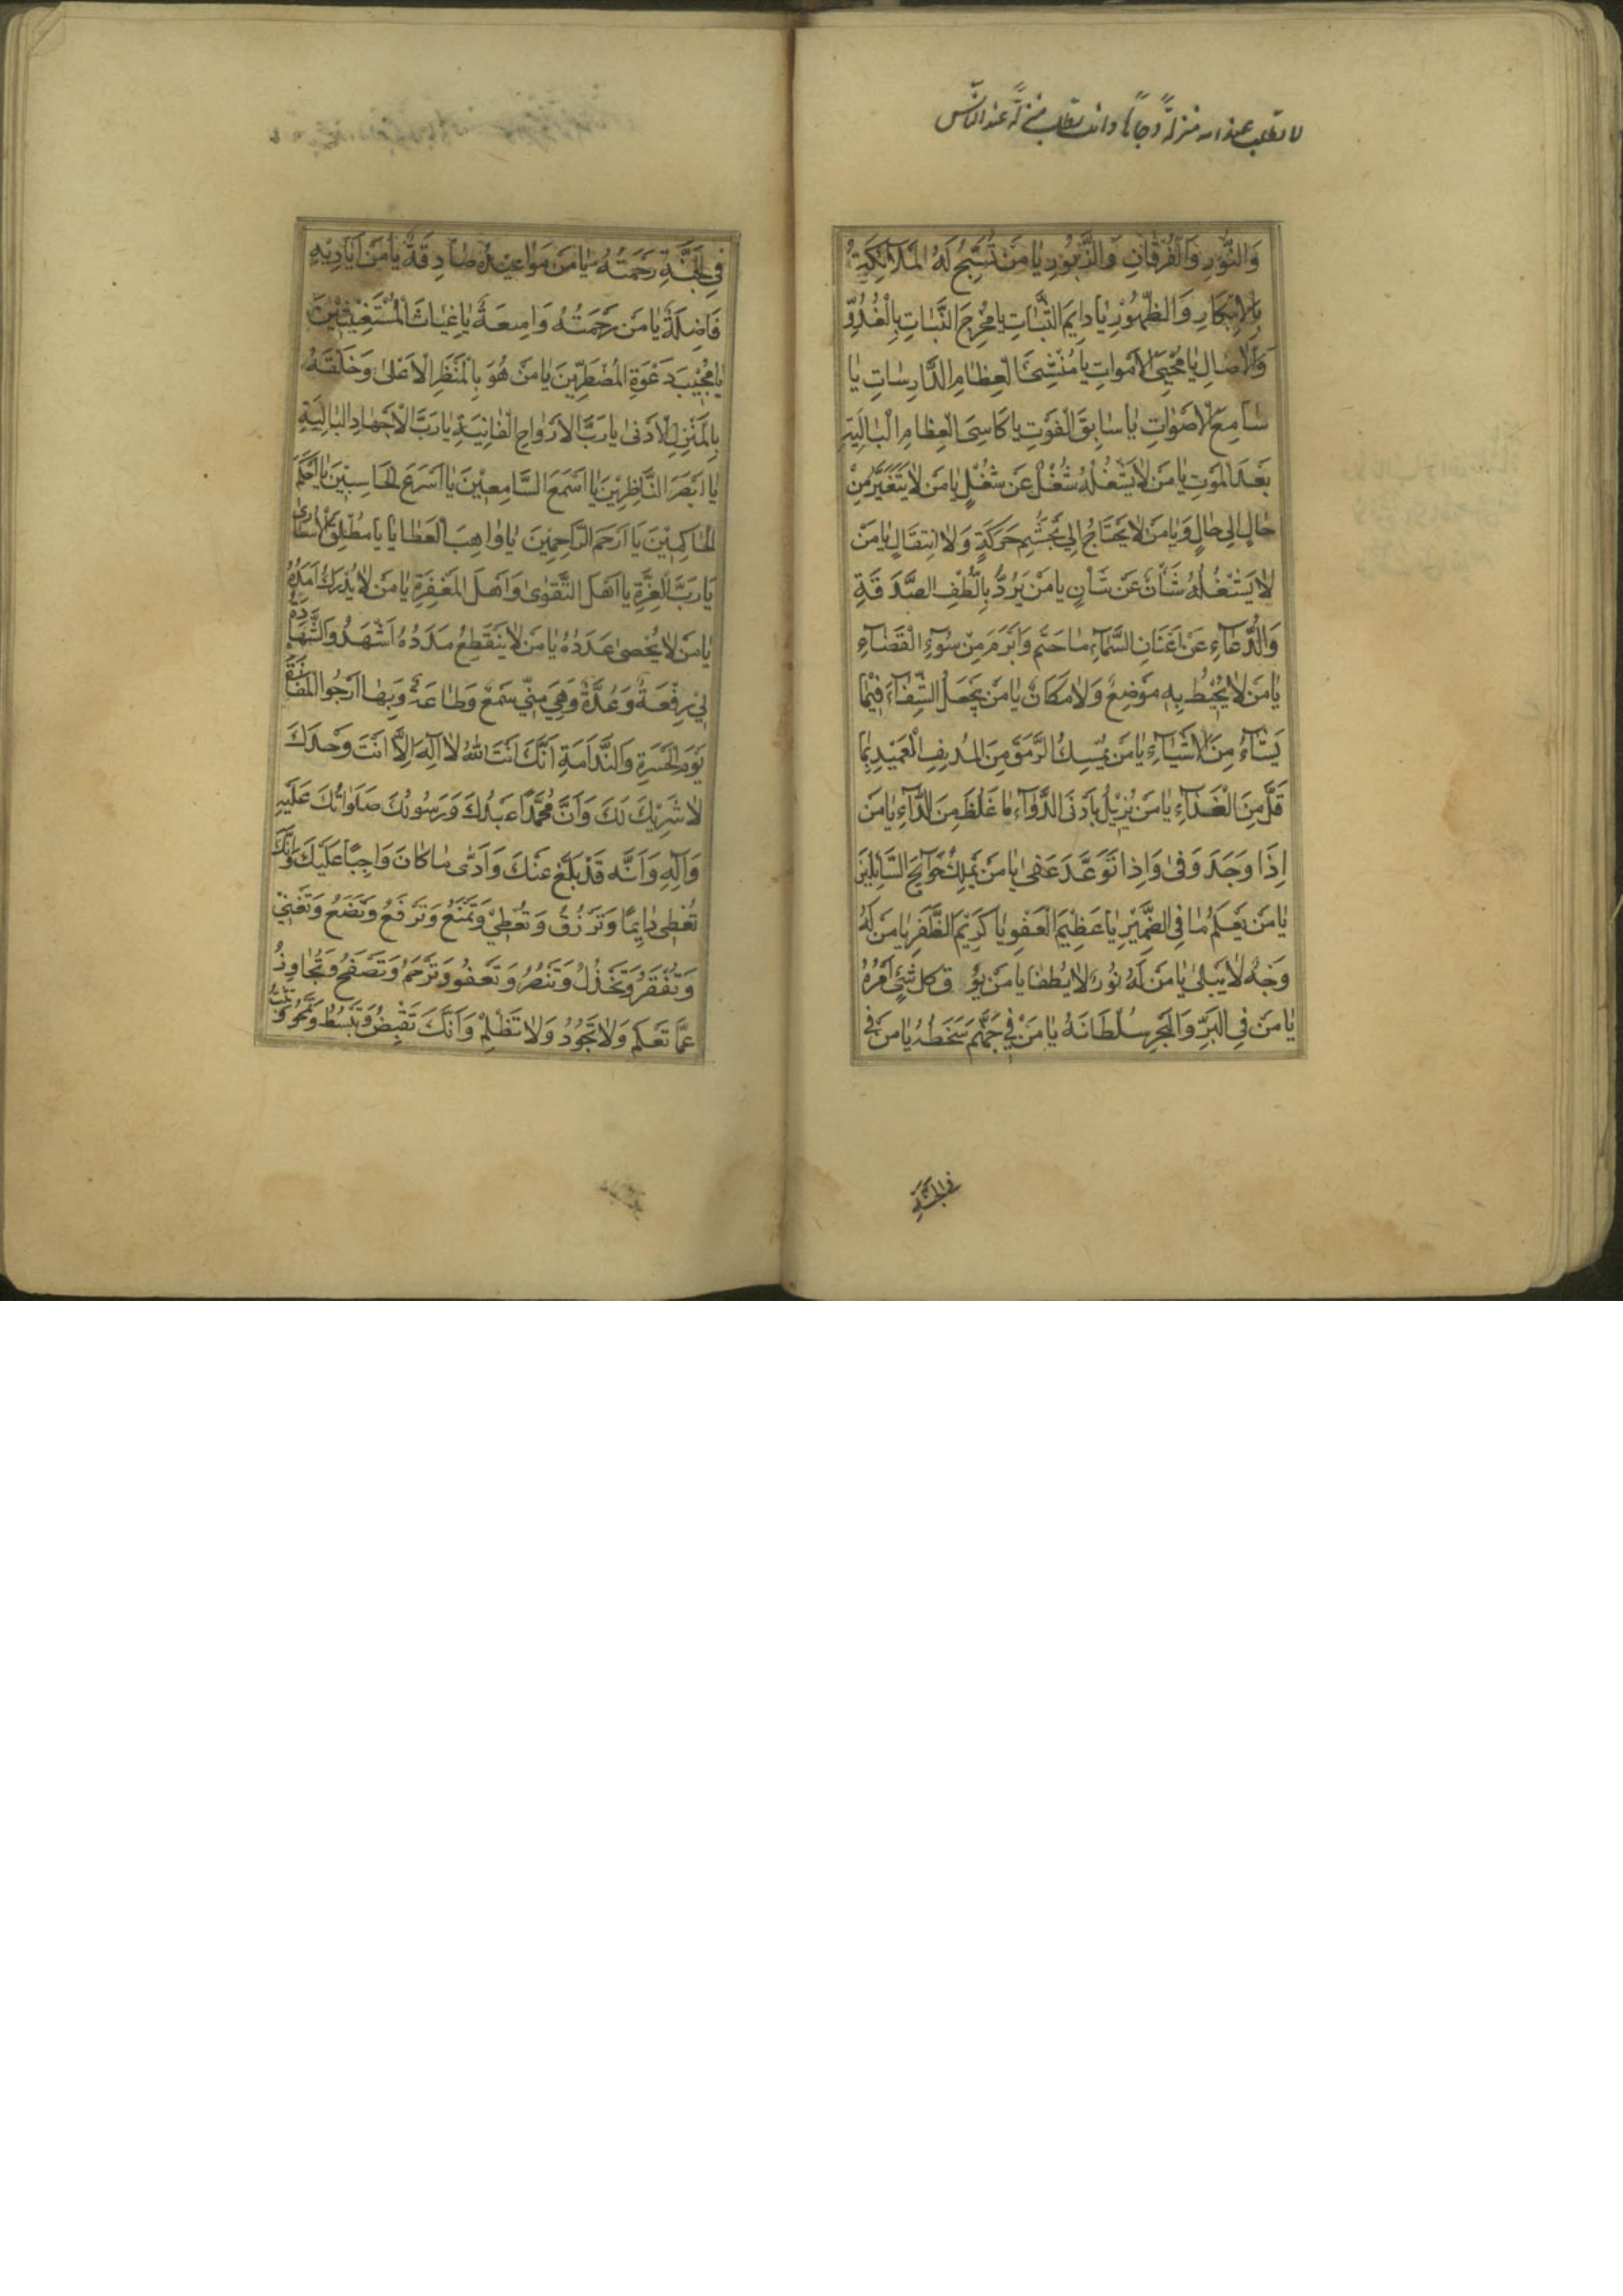 لا تطلب عند الله منزلةً وجاهاً وانت تطلب منزلةً عند الناس
وَالنُّورِ وَالْفُرْقَانِ وَالزَّبُورِ يَا مَنْ تُسَبِّحُ لَهُ الْمَلَائِكَةُ
بِالْاِبْكَارِ وَالظُّهُورِ يَا دَايِمَ الثَّبَاتِ يَا مُخْرِجَ النَّبَاتِ بِالْغُدُوِّ
وَالْاٰصَالِ يَا مُحْيِيَ الْاَمْوَاتِ يَا مُنْشِئَ الْعِظَامِ الدَّارِسَاتِ يَا
سَامِعَ الْاَصْوَاتِ يَا سَابِقَ الْفَوْتِ يَا كَاسِيَ الْعِظَامِ الْبَالِيَةِ
بَعْدَ الْمَوْتِ يَا مَنْ لَا يَشْغُلُهُ شُغْلٌ عَنْ شُغْلٍ يَا مَنْ لَا يَتَغَيَّرُ مِنْ
حَالٍ اِلٰى حَالٍ وَيَا مَنْ لَا يَحْتَاجُ اِلٰى تَجَشُّمِ حَرَكَةٍ وَلَا انْتِقَالٍ يَا مَنْ
لَا يَشْغُلُهُ شَأْنٌ عَنْ شَانٍ يَا مَنْ يَرُدُّ بِاَلْطَفِ الصَّدَقَةِ
وَالدُّعَآءِ عَنْ اَعْنَانِ السَّمَآءِ مَا حَتَمَ وَاَبْرَمَ مِنْ سُوٓءِ الْقَضَآءِ
يَا مَنْ لَا يُحِيْطُ بِهِ مَوْضِعٌ وَلَا مَكَانٌ يَا مَنْ يَجْعَلُ الشِّفَآءَ فِيْمَا
يَشَآءُ مِنَ الْاَشْيَآءِ يَا مَنْ يُمْسِكُ الرَّمَقَ مِنَ الْمُدْنِفِ الْعَمِيْدِ بِمَا
قَلَّ مِنَ الْغَدَآءِ يَا مَنْ يُزِيْلُ بِاَدْنَى الدَّوَآءِ مَا غَلُظَ مِنَ الدَّآءِ يَا مَنْ
اِذَا وَعَدَ وَفٰى وَاِذَا تَوَعَّدَ عَفٰى يَا مَنْ يَمْلِكُ حَوَآئِجَ السَّآئِلِيْنَ
يَا مَنْ يَعْلَمُ مَا فِى الضَّمِيْرِ يَا عَظِيْمَ الْعَفْوِ يَا كَرِيْمَ الظَّفَرِ يَا مَنْ لَهُ
وَجْهٌ لَا يَبْلٰى يَا مَنْ لَهُ نُورٌ لَا يُطْفٰا يَا مَنْ فوق كل شَيْءٍ اَمْرُهُ
يَا مَنْ فِى الْبَرِّ وَالْبَحْرِ سُلْطَانَهُ يَا مَنْ فِيْ جَهَنَّمَ سَخَطُهُ يَا مَنْ فِى
في الجنة
فِي الْجَنَّةِ رَحْمَتُهُ يَا مَنْ مَوَاعِيْدُهُ صَادِقَةٌ يَا مَنْ اَيَادِيْهِ
فَاضِلَةٌ يَا مَنْ رَحْمَتُهُ وَاسِعَةٌ يَا غِيَاثَ الْمُسْتَغِيْثِيْنَ
يَا مُجِيْبَ دَعْوَةِ الْمُضْطَرِّيْنَ يَا مَنْ هُوَ بِالْمَنْظَرِ الْاَعْلٰى وَخَلْقُهُ
بِالْمَنْزِلِ الْاَدْنٰى يَا رَبَّ الْاَرْوَاحِ الْفَانِيَةِ يَا رَبَّ الْاَجْسَادِ الْبَالِيَةِ
يَا اَبْصَرَ النَّاظِرِيْنَ يَا اَسْمَعَ السَّامِعِيْنَ يَا اَسْرَعَ الْحَاسِبِيْنَ يَا اَحْكَمَ
الْحَاكِمِيْنَ يَا اَرْحَمَ الرَّاحِمِيْنَ يَا وَاهِبَ الْعَطَايَا يَا مُطْلِقَ الْاُسَارٰى
يَا رَبَّ الْعِزَّةِ يَا اَهْلَ التَّقْوٰى وَاَهْلَ الْمَغْفِرَةِ يَا مَنْ لَا يُدْرَكُ اَمَدُهُ
يَا مَنْ لَا يُحْصٰى عَدَدُهُ يَا مَنْ لَا يَنْقَطِعُ مَدَدُهُ اَشْهَدُ وَالشَّهَادَةُ
لِيْ رِفْعَةٌ وَعُدَّةٌ وَهِيَ مِنِّيْ سَمْعٌ وَطَاعَةٌ وَبِهَا اَرْجُوا الْمَفَازَةَ
يَوْمَ الْحَسْرَةِ وَالنَّدَامَةِ اَنَّكَ اَنْتَ اللّٰهُ لَا اِلٰهَ اِلَّا اَنْتَ وَحْدَكَ
لَا شَرِيْكَ لَكَ وَاَنَّ مُحَمَّدًا عَبْدُكَ وَرَسُوْلُكَ صَلَوَاتُكَ عَلَيْهِ
وَاٰلِهِ وَاَنَّهُ قَدْ بَلَّغَ عَنْكَ وَاَدّٰى مَا كَانَ وَاجِبًا عَلَيْكَ وَاَنَّكَ
تُعْطِى دَايِمًا وَتَرْزُقُ وَتُعْطِيْ وَتَمْنَعُ وَتَرْفَعُ وَتَضَعُ وَتُغْنِيْ
وَتُفْقِرُ وَتَخْذُلُ وَتَنْصُرُ وَتَعْفُو وَتَرْحَمُ وَتَصْفَحُ وَتُجَاوِزُ
عَمَّا تَعْلَمُ وَلَا تَجُوْرُ وَلَا تَظْلِمُ وَاَنَّكَ تَقْبِضُ وَتَبْسُطُ وَتَمْحُو وَتُثْبِتُ